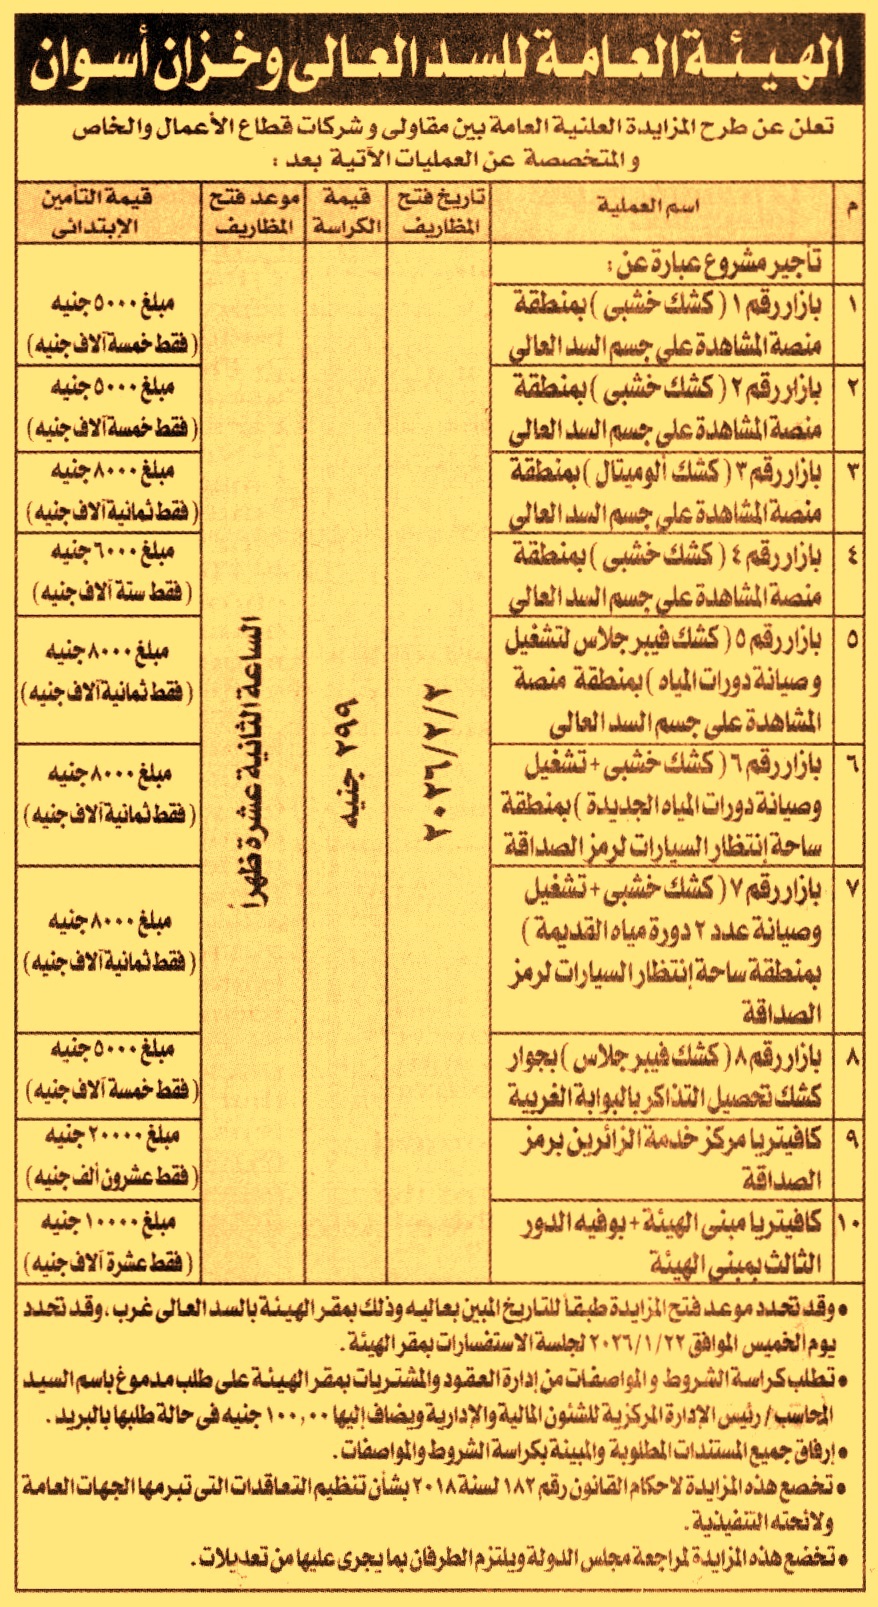 الهيئة العامة للسد العالى وخزان أسوان
تعلن عن طرح المزايدة العلنية العامة بين مقاولى وشركات قطاع الأعمال والخاص
والمتخصصة عن العمليات الآتية بعد :
م
اسم العملية
تاريخ فتح
المظاريف
قيمة
الكراسة
موعد فتح
المظاريف
قيمة التأمين
الإبتدائى
تأجير مشروع عبارة عن :
١
بازار رقم ١ ( كشك خشبى ) بمنطقة
منصة المشاهدة على جسم السد العالى
مبلغ ٥٠٠٠ جنيه
( فقط خمسة آلاف جنيه )
٢
بازار رقم ٢ ( كشك خشبى ) بمنطقة
منصة المشاهدة على جسم السد العالى
مبلغ ٥٠٠٠ جنيه
( فقط خمسة آلاف جنيه )
٣
بازار رقم ٣ ( كشك ألوميتال ) بمنطقة
منصة المشاهدة على جسم السد العالى
مبلغ ٨٠٠٠ جنيه
( فقط ثمانية آلاف جنيه )
٤
بازار رقم ٤ ( كشك خشبى ) بمنطقة
منصة المشاهدة على جسم السد العالى
مبلغ ٦٠٠٠ جنيه
( فقط ستة آلاف جنيه )
٥
بازار رقم ٥ ( كشك فيبر جلاس لتشغيل
وصيانة دورات المياه ) بمنطقة منصة
المشاهدة على جسم السد العالى
مبلغ ٨٠٠٠ جنيه
( فقط ثمانية آلاف جنيه )
٢٠٢٦/٢/٢
٢٩٩ جنيه
الساعة الثانية عشرة ظهراً
٦
بازار رقم ٦ ( كشك خشبى + تشغيل
وصيانة دورات المياه الجديدة ) بمنطقة
ساحة إنتظار السيارات لرمز الصداقة
مبلغ ٨٠٠٠ جنيه
( فقط ثمانية آلاف جنيه )
٧
بازار رقم ٧ ( كشك خشبى + تشغيل
وصيانة عدد ٢ دورة مياه القديمة )
بمنطقة ساحة إنتظار السيارات لرمز
الصداقة
مبلغ ٨٠٠٠ جنيه
( فقط ثمانية آلاف جنيه )
٨
بازار رقم ٨ ( كشك فيبر جلاس ) بجوار
كشك تحصيل التذاكر بالبوابة الغربية
مبلغ ٥٠٠٠ جنيه
( فقط خمسة آلاف جنيه )
٩
كافيتريا مركز خدمة الزائرين برمز
الصداقة
مبلغ ٢٠٠٠٠ جنيه
( فقط عشرون ألف جنيه )
١٠
كافيتريا مبنى الهيئة + بوفيه الدور
الثالث بمبنى الهيئة
مبلغ ١٠٠٠٠ جنيه
( فقط عشرة آلاف جنيه )
• وقد تحدد موعد فتح المزايدة طبقاً للتاريخ المبين بعاليه وذلك بمقر الهيئة بالسد العالى غرب ، وقد تحدد
يوم الخميس الموافق ٢٠٢٦/١/٢٢ لجلسة الاستفسارات بمقر الهيئة .
• تطلب كراسة الشروط والمواصفات من إدارة العقود والمشتريات بمقر الهيئة على طلب مدموغ باسم السيد
المحاسب/ رئيس الإدارة المركزية للشئون المالية والإدارية ويضاف إليها ١٠٠,٠٠ جنيه فى حالة طلبها بالبريد .
• إرفاق جميع المستندات المطلوبة والمبينة بكراسة الشروط والمواصفات .
• تخضع هذه المزايدة لاحكام القانون رقم ١٨٢ لسنة ٢٠١٨ بشأن تنظيم التعاقدات التى تبرمها الجهات العامة
ولائحته التنفيذية .
• تخضع هذه المزايدة لمراجعة مجلس الدولة ويلتزم الطرفان بما يجرى عليها من تعديلات .